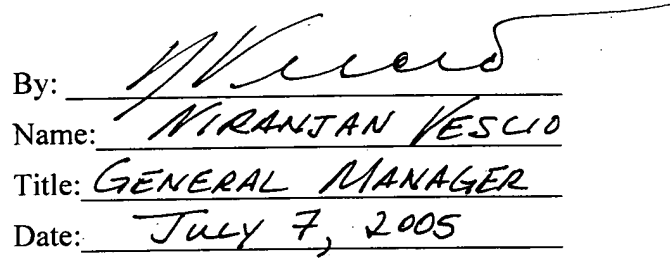 By: NVescio
Name: NIRANJAN VESCIO
Title: GENERAL MANAGER
Date: July 7, 2005